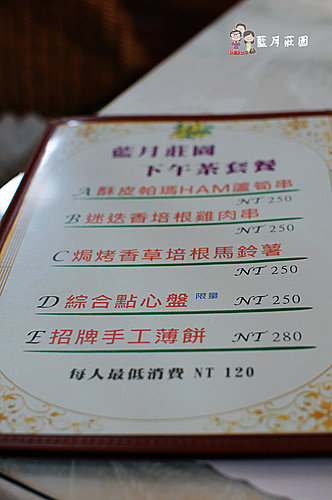 藍月莊園
藍月莊園
下午茶套餐
A 酥皮帕瑪HAM蘆筍串
NT 250
B 迷迭香培根雞肉串
NT 250
C 焗烤香草培根馬鈴薯
NT 250
D 綜合點心盤 限量 NT 250
E 招牌手工薄餅 NT 280
每人最低消費 NT 120